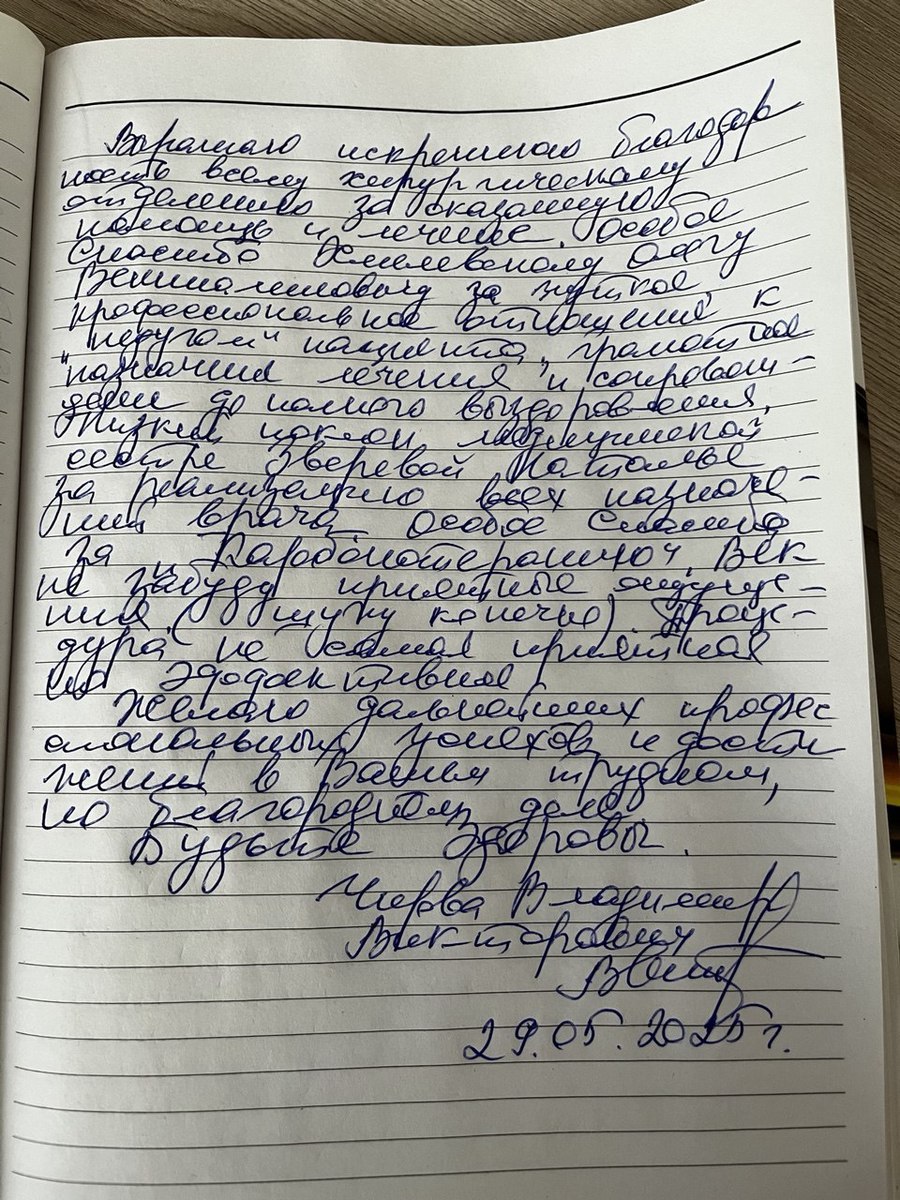 Выражаю искреннюю благодар
ность всему хирургическому
отделению за оказанную
помощь и лечение. Особое
Спасибо Хмелевскому Олегу
Вениаминовичу за чуткое,
профессиональное отношение к
"недугам" пациента, грамотное
назначение лечения и сопровож-
дение до полного выздоровления.
Низкий поклон медицинской
сестре Зверевой Наталье
за реализацию всех назначе-
ний врача. Особое Спасибо
за "Карбокситерапию". Век
не забуду приятные ощуще-
ния. (шучу конечно) Проце-
дура не самая приятная
но эффективная
Желаю дальнейших профес
сиональных успехов и дости
жений в Вашем трудном,
но благородном деле.
Будьте Здоровы.
Владимир
Викторович
29.05.2025 г.